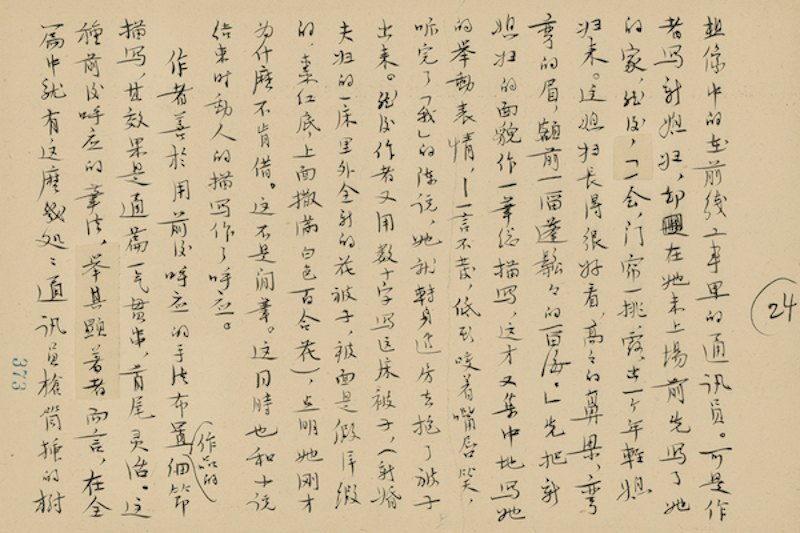 24
想像中的在前线工事里的通讯员。可是作
者写新媳妇,却在她未上场前先写了她
的家,然后,「一会,门帘一挑,露出一个年轻媳
妇来。这媳妇长得很好看,高々的鼻梁,弯
弯的眉,额前一溜蓬鬆々的留海。」先把新
媳妇的面貌作一笔总描写,这才又集中地写她
的举动表情,—一言不发,低头咬着嘴唇笑,
听完了「我」的陈说,她就转身进房去抱了被子
出来。然后作者又用数十字写这床被子,(新婚
夫妇的一床里外全新的花被子,被面是假洋缎
的,枣红底上面撒满白色百合花),点明她刚才
为什麽不肯借。这不是闲笔。这同时也和小说
结束时动人的描写作了呼应。
作者善於用前后呼应的手法布置(作品的)细节
描写,其效果是通篇一气贯串,首尾灵活。这
种前后呼应的笔法,举其顯著者而言,在全
篇中就有这麽幾处:通讯员槍筒插的树
373